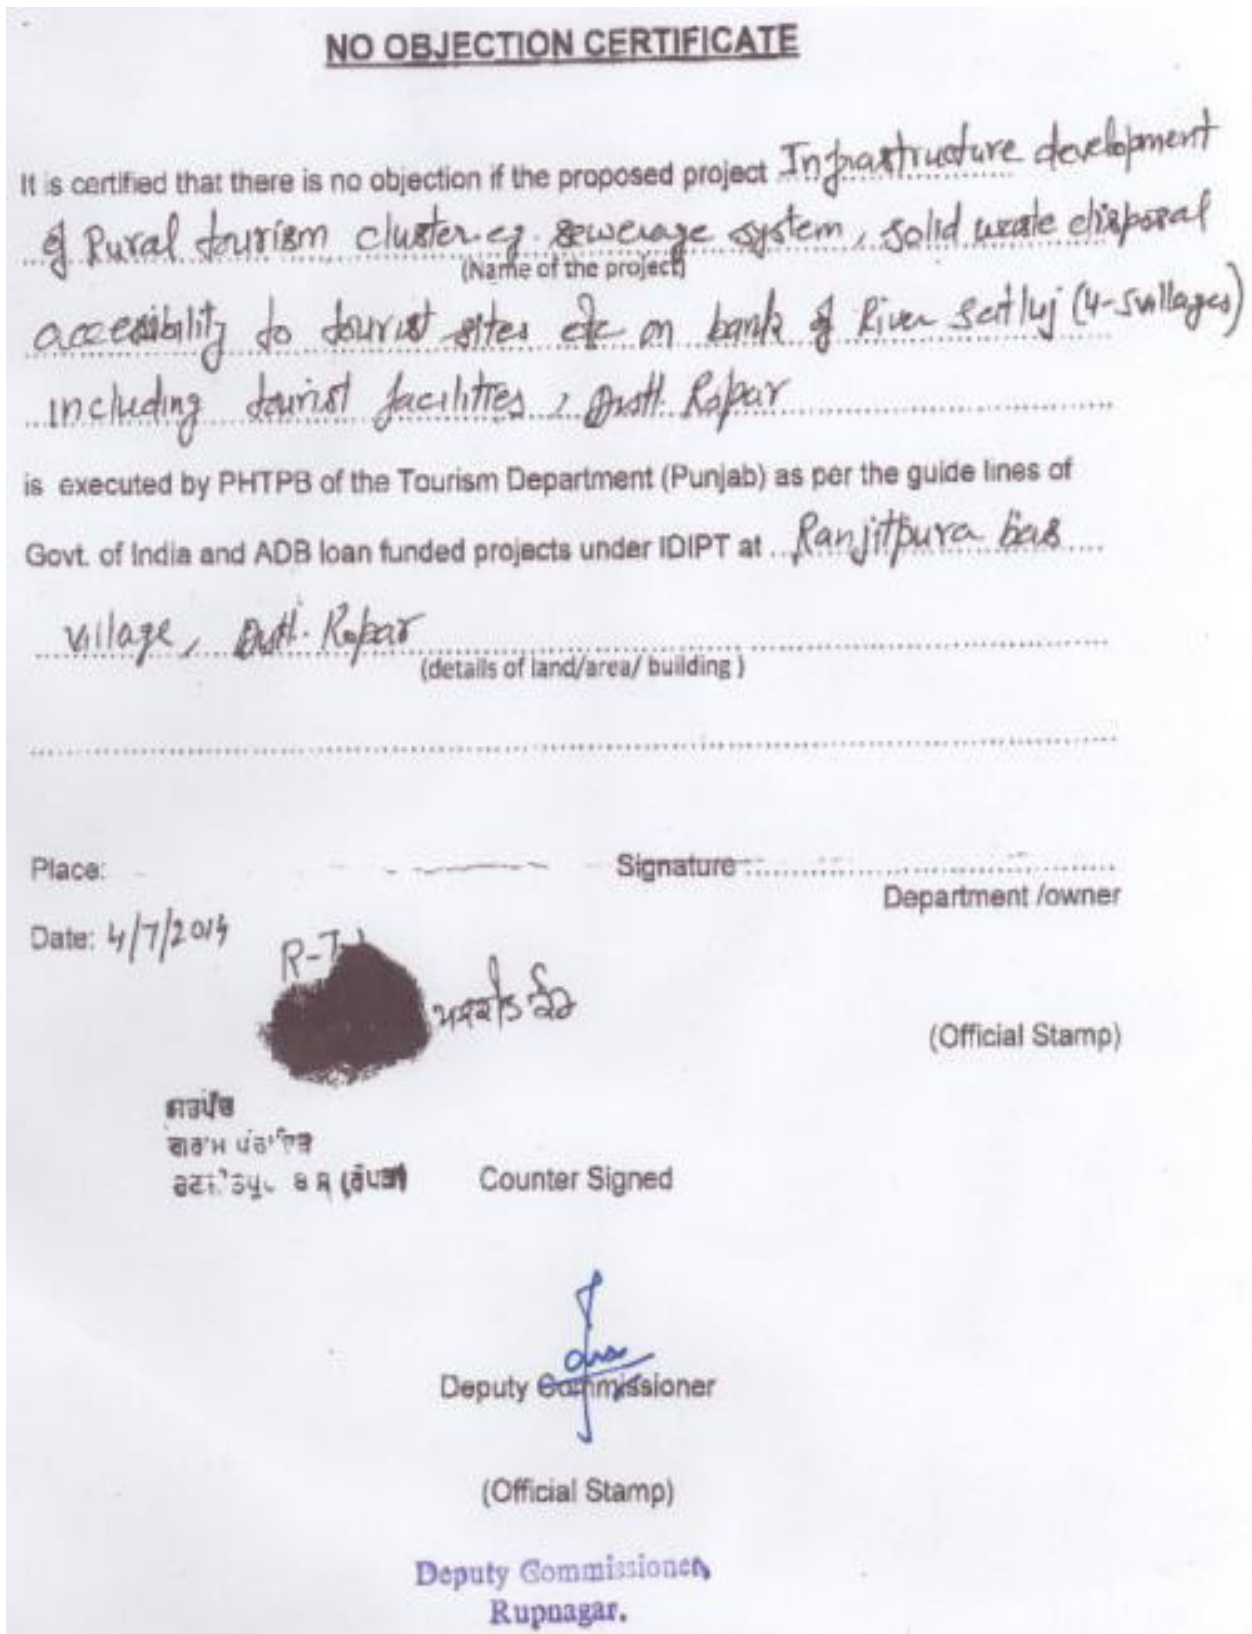 NO OBJECTION CERTIFICATE
It is certified that there is no objection if the proposed project Infrastructure development
of Rural tourism cluster eg. sewerage system, solid waste disposal
(Name of the project)
accessibility to tourist sites etc on bank of River Satluj (4-5 villages)
including tourist facilities, Distt. Ropar
is executed by PHTPB of the Tourism Department (Punjab) as per the guide lines of
Govt. of India and ADB loan funded projects under IDIPT at Ranjitpura bas
village, Distt. Ropar
(details of land/area/ building )
Place:
Signature
Department /owner
Date: 4/7/2014
ਕੌਰ
(Official Stamp)
ਸਰਪੰਚ
ਗਰਾਮ ਪੰਚਾਇਤ
Counter Signed
Deputy Commissioner
(Official Stamp)
Deputy Commissioner,
Rupnagar.